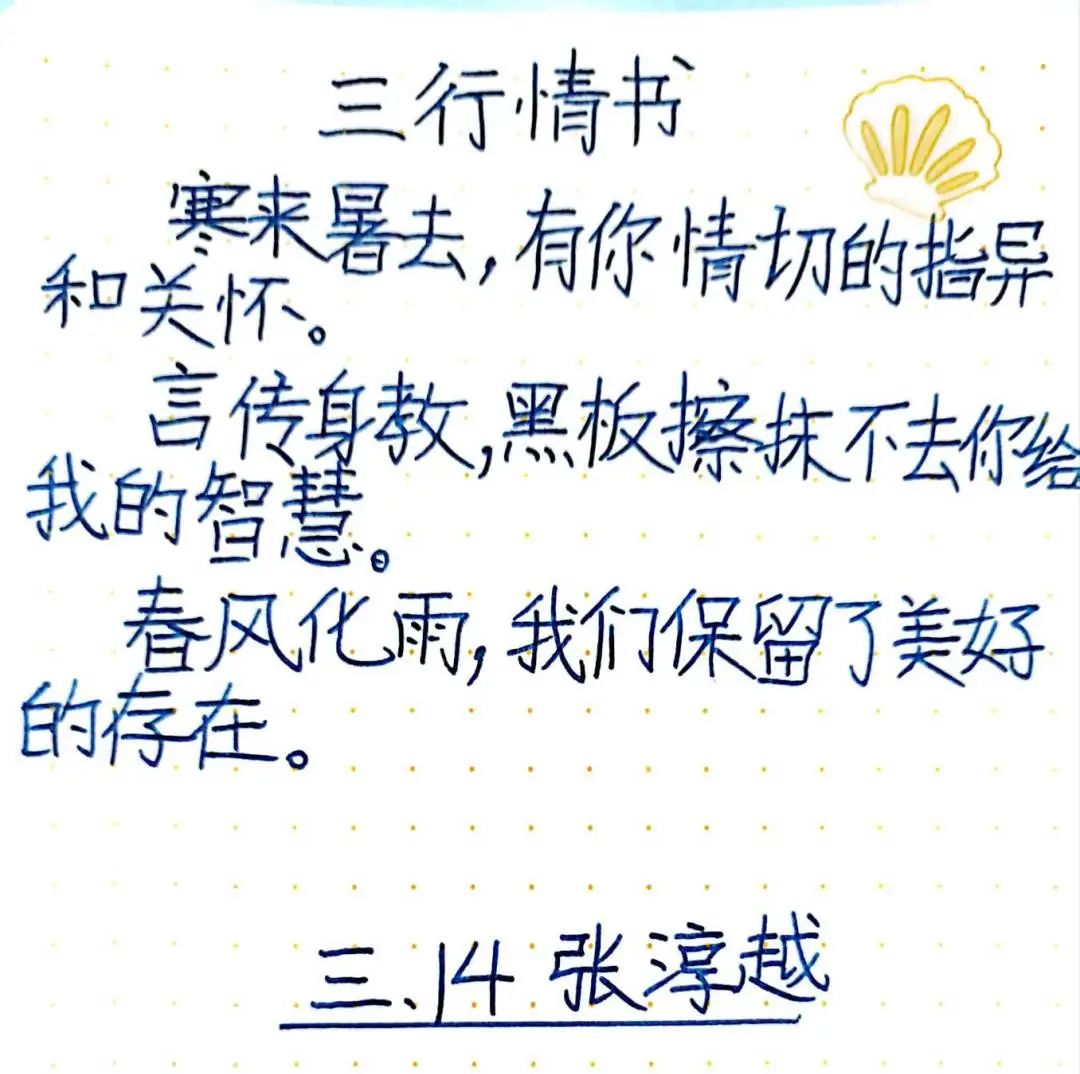 三行情书
寒来暑去,有你情切的指异
和关怀。
言传身教,黑板擦抹不去你给
我的智慧。
春风化雨,我们保留了美好
的存在。
三.14 张淳越